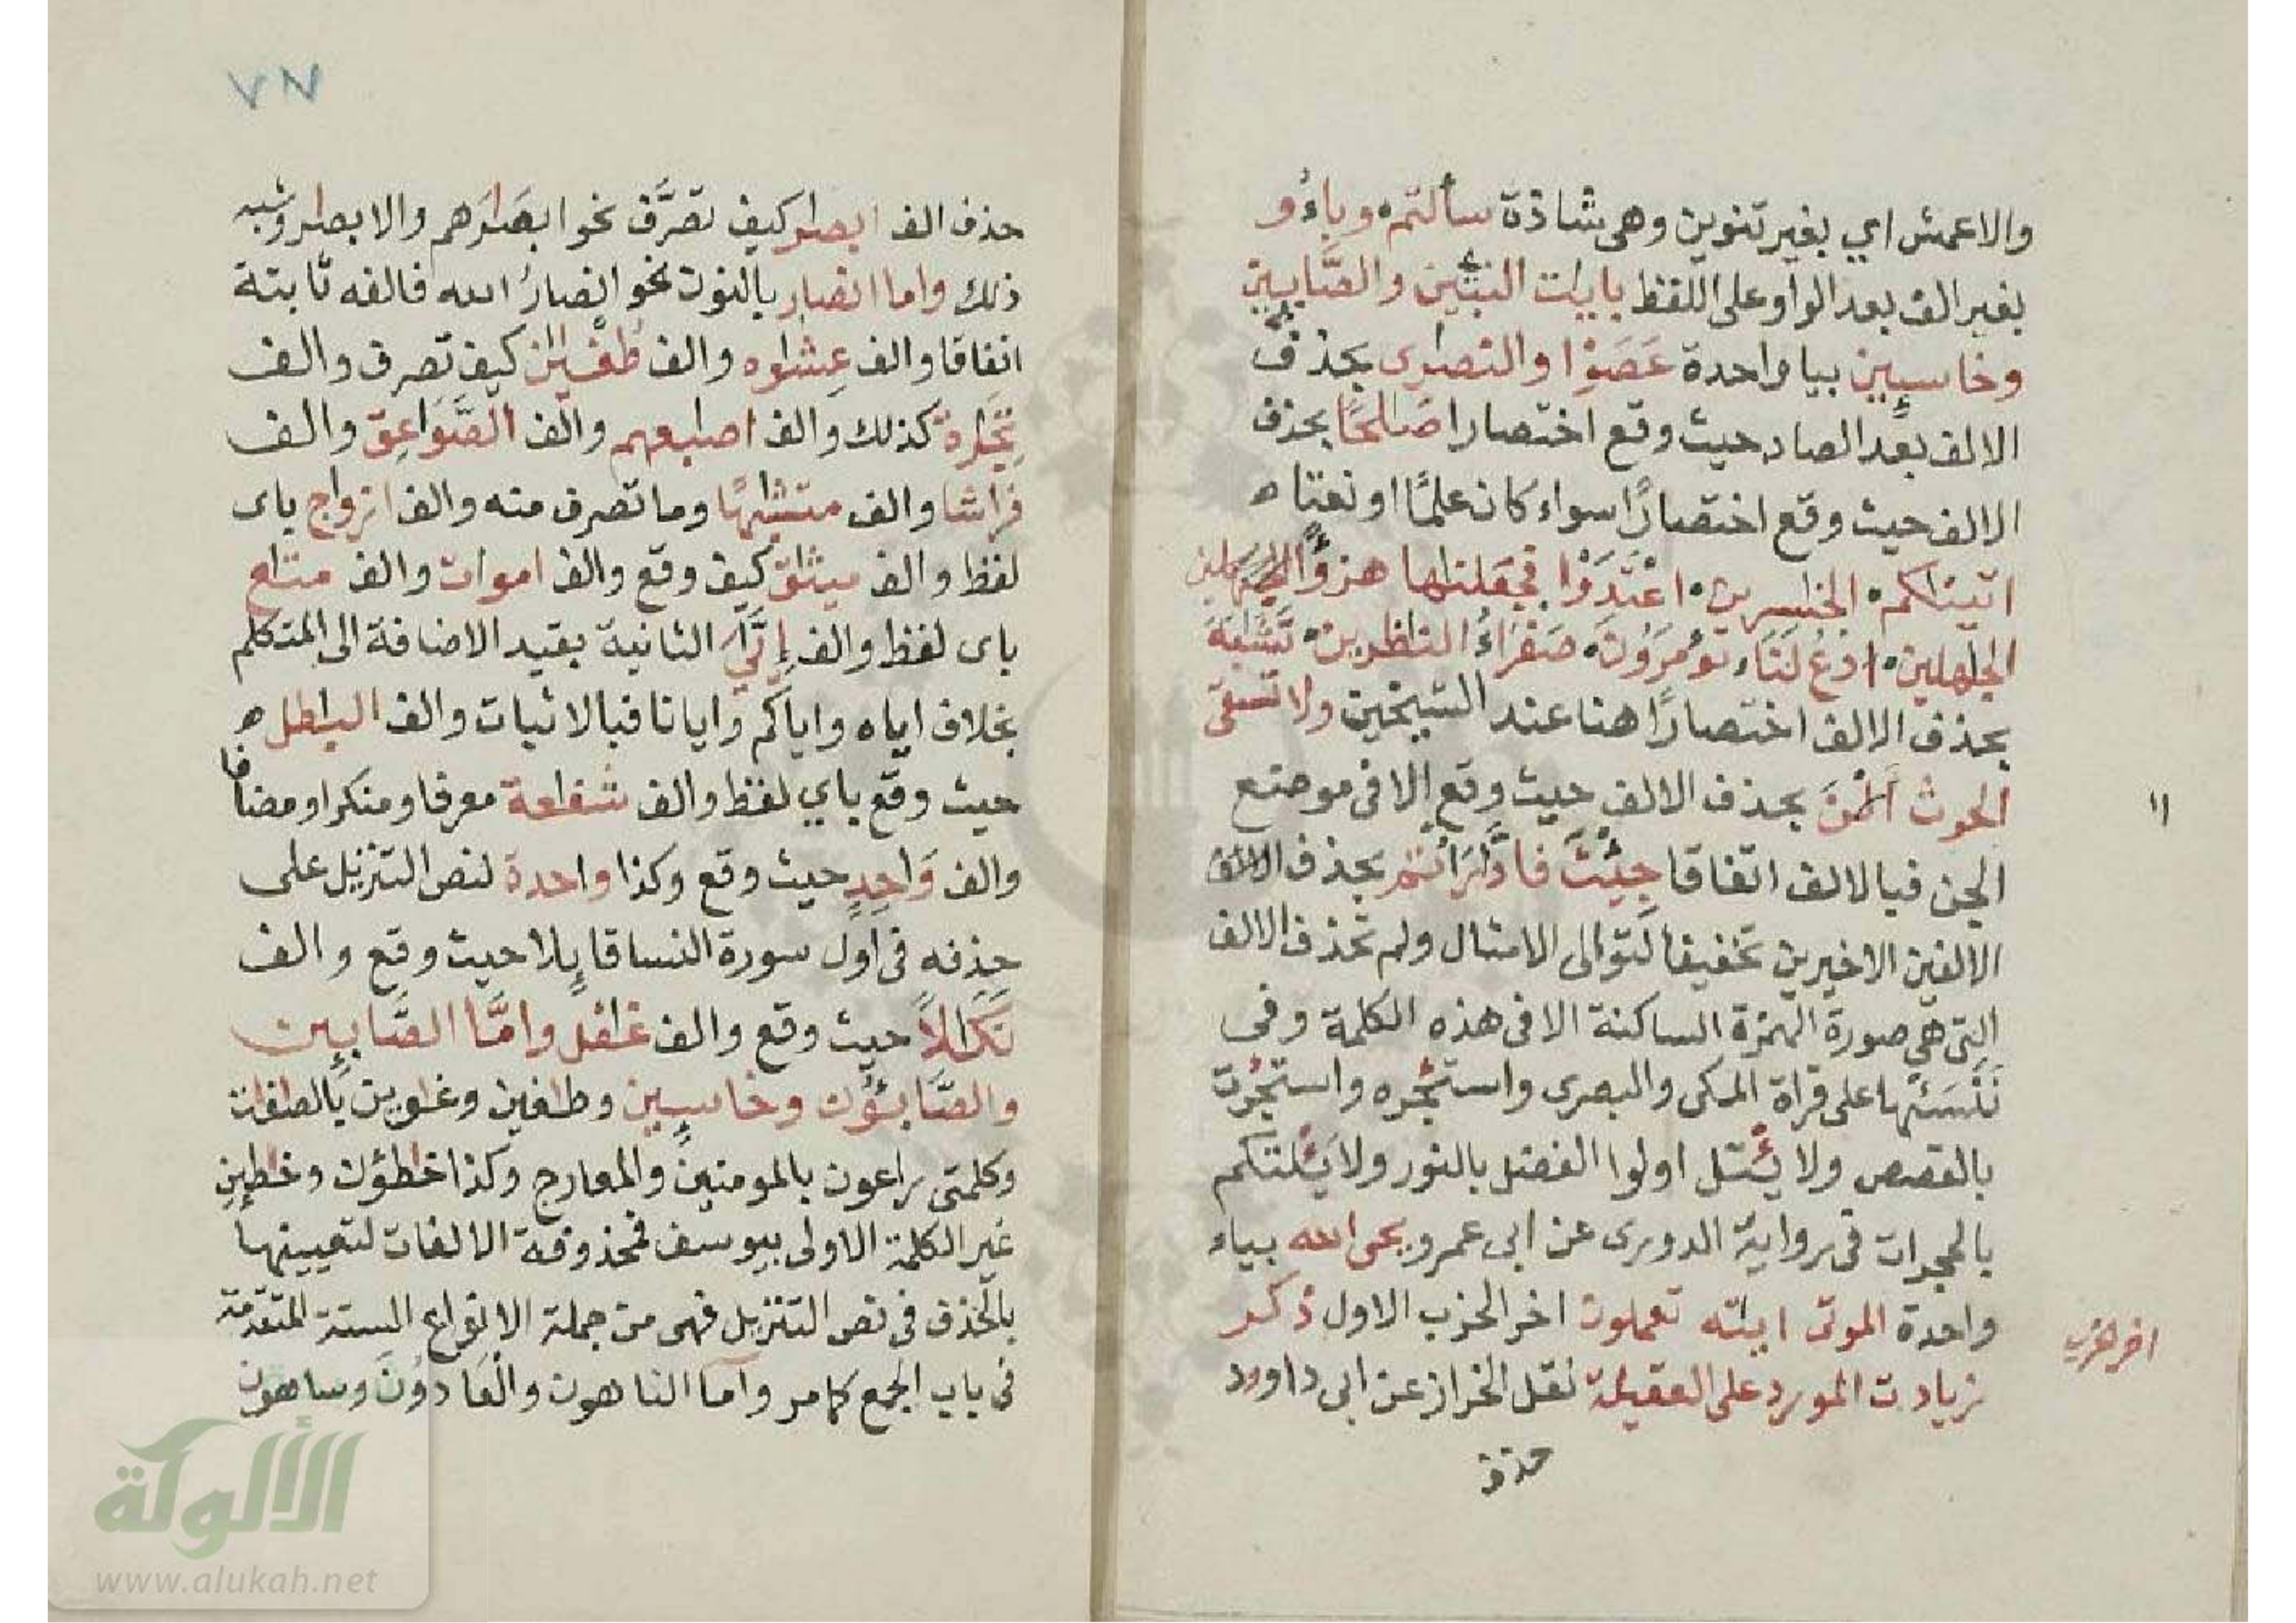 والاعمش اي بغير تنوين وهى شاذة سألتم وباءو
بغير الف بعد الواو وعلى اللفظ بايات النبيّين والصَّابين
وخاسيين بيا واحدة عَصَوْا والنصارى بحذف
الالف بعد الصاد حيث وقع اختصارا صَالحًا بحذف
الالف حيث وقع اختصارًا سواء كان علمًا او نعتا ه
اتيناكم الخاسرين اعْتَدَوْا فجعلناها هزؤًا
الجاهلين ادعُ لَنَا تؤمَرُونَ صَفرَاءُ الناظرين تَشَبَهَ
بحذف الالف اختصارًا هنا عند الشيخين ولا تسقى
الحرث الْنَ بحذف الالف حيث وقع الا فى موضع
الجن فبالالف اتفاقا جِيْتَ فادَّارَأْتم بحذف الالف
الالفين الاخيرين تخفيفا لتوالى الامثال ولم تحذف الالف
التى هى صورة الهمزة الساكنة الا فى هذه الكلمة وفى
نَنْسَئها على قراة المكى والبصرى واستئجره واستئجرت
بالقصص ولا يئتل اولوا الفضل بالنور ولا يَئلتكم
بالحجرات فى رواية الدورى عن ابى عمرو يحى الله بياء
واحدة الموتى ايته تعملون اخر الحزب الاول ذكر
زيادت المورد على العقيلة نقل الخراز عن ابى داوود
حذف
اا
اخر الحزب
٧٧
حذف الف ابصار كيف تصرَّف نحو ابصَارَهم والابصار وشبه
ذلك واما انصار بالنون نحو انصارُ الله فالفه ثابتة
اتفاقا والف غِشاوه والف طُغْيان كيف تصرف والف
تِجَارة كذلك والف اصابعهم والف الصَّوَاعِق والف
فراشا والف متشابهًا وما تصرف منه والف ازواج باى
لفظ والف ميثاق كيف وقع والف اموات والف متاع
باى لفظ والف إيَّايَ الثانية بقيد الاضافة الى المتكلم
بخلاف اياه واياكم وايانا فبالاثبات والف الباطل ه
حيث وقع باي لفظ والف شفاعة معرفا ومنكرا ومضافا
والف وَاحِدٍ حيث وقع وكذا واحدة لنص التنزيل على
حذفه فى اول سورة النسا قايلا حيث وقع والف
نَكَالاً حيث وقع والف غافل وامَّا الصَّابين
والصَّابئُون وخاسيين وطاغين وغاوين بالصافات
وكلمتى راعون بالمومنين والمعارج وكذا خاطؤن وخاطين
غير الكلمة الاولى بيوسف فمحذوفة الالفات لتعيينها
بالحذف فى نص التنزيل فهى من جملة الانواع الستة المتقدمة
فى باب الجمع كما مر وأما الناهون والْعَادُونَ وساهون
الألوكة
www.alukah.net